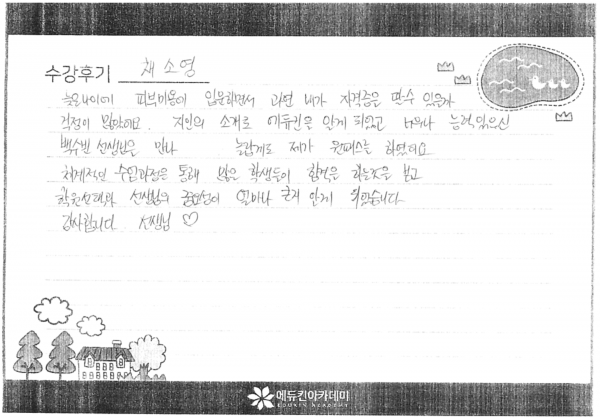 수강후기 채소영
늦은나이에 피부미용에 입문하면서 과연 내가 자격증은 딸수 있을까
걱정이 많았어요. 지인의 소개로 에듀킨을 알게 되었고 너무나 능력있으신
백수빈 선생님을 만나 놀랍게도 제가 원패스를 하였네요
체계적인 수업과정을 통해 많은 학생들이 합격을 하는것을 보고
학원선택과 선생님의 중요성이 얼마나 큰지 알게 되었습니다
감사합니다 선생님 ♡
에듀킨아카데미
EDUKIN ACADEMY